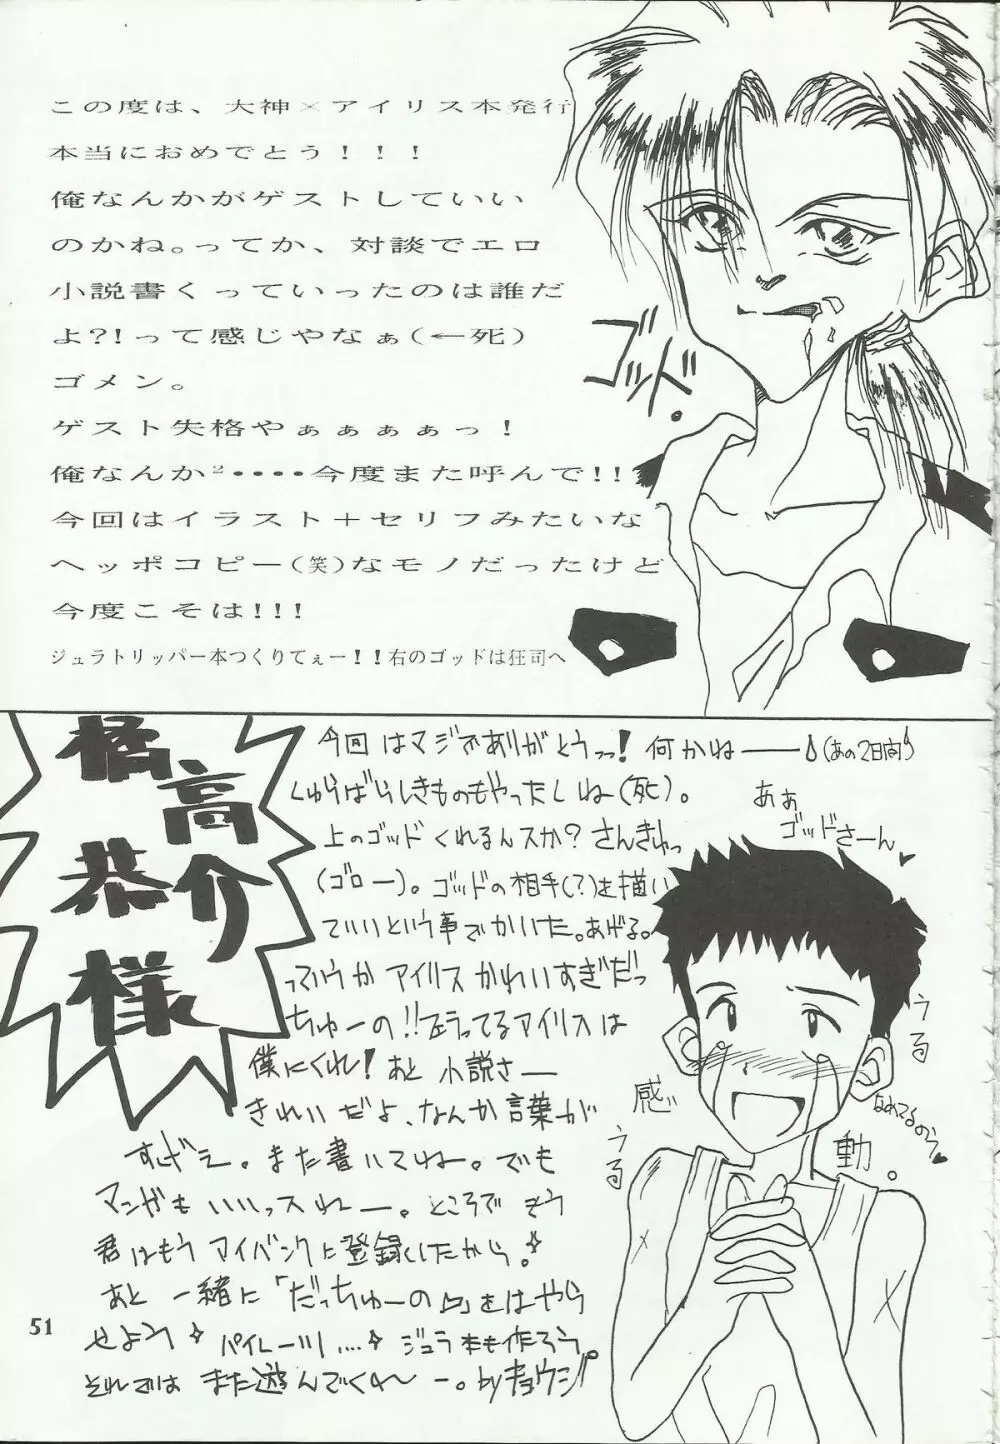 この度は、大神×アイリス本発行
本当におめでとう！！！
俺なんかがゲストしていい
のかね。ってか、対談でエロ
小説書くっていったのは誰だ
よ?!って感じやなぁ(←死)
ゴメン。
ゲスト失格やぁぁぁぁっ！
俺なんか²・・・・今度また呼んで!!
今回はイラスト＋セリフみたいな
ヘッポコピー(笑)なモノだったけど
今度こそは!!!
ジュラトリッパー本つくりてぇー！！右のゴッドは狂司へ
ゴッド。
橘
高
恭介様
今回はマジでありがとうっ! 何かねー(あの2日間)
しゅらばらしきものもやったしね(死)。
上のゴッドくれるんスか? さんきゅっ
(ゴロー)。ゴッドの相手(?)を描い
ていいという事でかいた。あげる。
っていうかアイリスかわいすぎだっ
ちゅーの!! 正うってるアイリスは
僕にくれ! あと小説さー
きれいだよ、なんか言葉が
すげえ。また書いてねー。でも
マンガもいいっスねー。ところで もう
君はもうアイバンクに登録したから。
あと 一緒に「だっちゅーの」をはやら
せよう パイレーツ.... ジュラ本も作ろう。
それでは また遊んでくれー。by キョウジ
ああ
ゴッドさーん♥
うる
うる
感
動。
なめてるのう♥
51